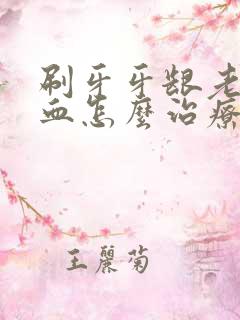 刷牙牙龈老
血怎麼治療
王麗菊